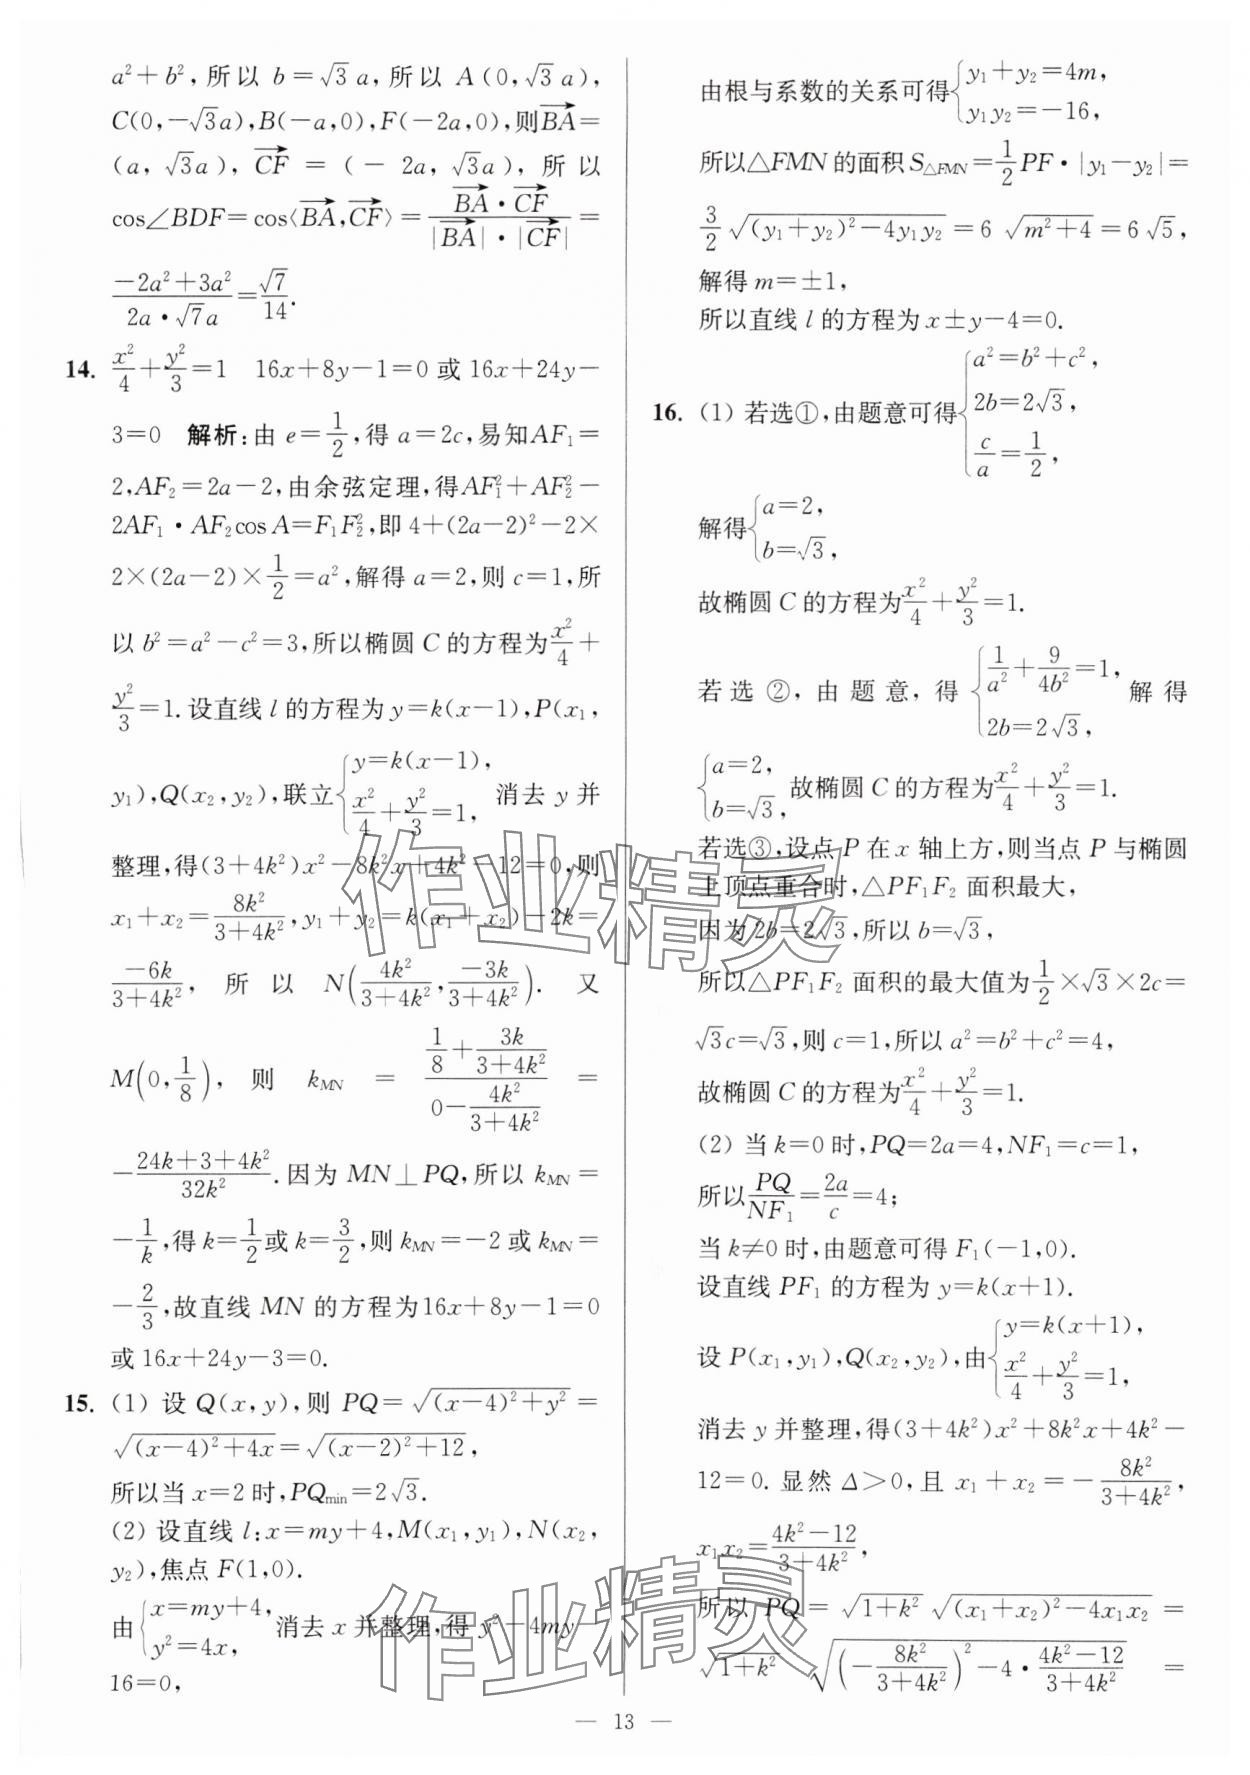 a²+b²,所以 b=√3 a,所以 A(0,√3 a),
C(0,-√3a),B(-a,0),F(-2a,0),则\overrightarrow{BA}=
(a,√3a),\overrightarrow{CF}=(-2a,√3a),所以
cos∠BDF=cos⟨\overrightarrow{BA},\overrightarrow{CF}⟩=\frac{\overrightarrow{BA}·\overrightarrow{CF}}{|\overrightarrow{BA}|·|\overrightarrow{CF}|}=
\frac{-2a²+3a²}{2a·√7a}=\frac{√7}{14}.
14. \frac{x²}{4}+\frac{y²}{3}=1 16x+8y-1=0 或 16x+24y-
3=0 解析:由 e=\frac{1}{2},得 a=2c,易知AF₁=
2,AF₂=2a-2,由余弦定理,得AF₁²+AF₂²-
2AF₁·AF₂cos A=F₁F₂²,即 4+(2a-2)²-2×
2×(2a-2)×\frac{1}{2}=a²,解得 a=2,则 c=1,所
以 b²=a²-c²=3,所以椭圆 C 的方程为\frac{x²}{4}+
\frac{y²}{3}=1.设直线 l 的方程为 y=k(x-1),P(x₁,
y₁),Q(x₂,y₂),联立\begin{cases}y=k(x-1),\\\frac{x²}{4}+\frac{y²}{3}=1,\end{cases} 消去 y 并
整理,得(3+4k²)x²-8k²x+4k²-12=0,则
x₁+x₂=\frac{8k²}{3+4k²},y₁+y₂=k(x₁+x₂)-2k=
\frac{-6k}{3+4k²},所以 N(\frac{4k²}{3+4k²},\frac{-3k}{3+4k²}).又
M(0,\frac{1}{8}),则 k_{MN}=\frac{\frac{1}{8}+\frac{3k}{3+4k²}}{0-\frac{4k²}{3+4k²}}=
-\frac{24k+3+4k²}{32k²}.因为 MN⊥PQ,所以 k_{MN}=
-\frac{1}{k},得 k=\frac{1}{2}或 k=\frac{3}{2},则 k_{MN}=-2 或 k_{MN}=
-\frac{2}{3},故直线 MN 的方程为16x+8y-1=0
或 16x+24y-3=0.
15. (1) 设 Q(x,y),则 PQ=\sqrt{(x-4)²+y²}=
\sqrt{(x-4)²+4x}=\sqrt{(x-2)²+12},
所以当 x=2 时,PQ_{min}=2√3.
(2) 设直线 l:x=my+4,M(x₁,y₁),N(x₂,
y₂),焦点 F(1,0).
由\begin{cases}x=my+4,\\y²=4x,\end{cases} 消去 x 并整理,得 y²-4my-
16=0,
由根与系数的关系可得\begin{cases}y₁+y₂=4m,\\y₁y₂=-16,\end{cases}
所以△FMN 的面积 S_{△FMN}=\frac{1}{2}PF·|y₁-y₂|=
\frac{3}{2}\sqrt{(y₁+y₂)²-4y₁y₂}=6\sqrt{m²+4}=6√5,
解得 m=±1,
所以直线 l 的方程为 x±y-4=0.
16. (1) 若选①,由题意可得\begin{cases}a²=b²+c²,\\2b=2√3,\\\frac{c}{a}=\frac{1}{2},\end{cases}
解得\begin{cases}a=2,\\b=√3,\end{cases}
故椭圆 C 的方程为\frac{x²}{4}+\frac{y²}{3}=1.
若选②,由题意,得\begin{cases}\frac{1}{a²}+\frac{9}{4b²}=1,\\2b=2√3,\end{cases} 解得
\begin{cases}a=2,\\b=√3,\end{cases} 故椭圆 C 的方程为\frac{x²}{4}+\frac{y²}{3}=1.
若选③,设点 P 在 x 轴上方,则当点 P 与椭圆
上顶点重合时,△PF₁F₂ 面积最大,
因为 2b=2√3,所以 b=√3,
所以△PF₁F₂ 面积的最大值为\frac{1}{2}×√3×2c=
√3c=√3,则 c=1,所以 a²=b²+c²=4,
故椭圆 C 的方程为\frac{x²}{4}+\frac{y²}{3}=1.
(2) 当 k=0 时,PQ=2a=4,NF₁=c=1,
所以\frac{PQ}{NF₁}=\frac{2a}{c}=4;
当 k≠0 时,由题意可得 F₁(-1,0).
设直线 PF₁ 的方程为 y=k(x+1).
设 P(x₁,y₁),Q(x₂,y₂),由\begin{cases}y=k(x+1),\\\frac{x²}{4}+\frac{y²}{3}=1,\end{cases}
消去 y 并整理,得(3+4k²)x²+8k²x+4k²-
12=0.显然 Δ>0,且 x₁+x₂=-\frac{8k²}{3+4k²},
x₁x₂=\frac{4k²-12}{3+4k²},
所以 PQ=\sqrt{1+k²}\sqrt{(x₁+x₂)²-4x₁x₂}=
\sqrt{1+k²}\sqrt{(-\frac{8k²}{3+4k²})²-4·\frac{4k²-12}{3+4k²}}=
作业精灵
作业精灵
— 13 —